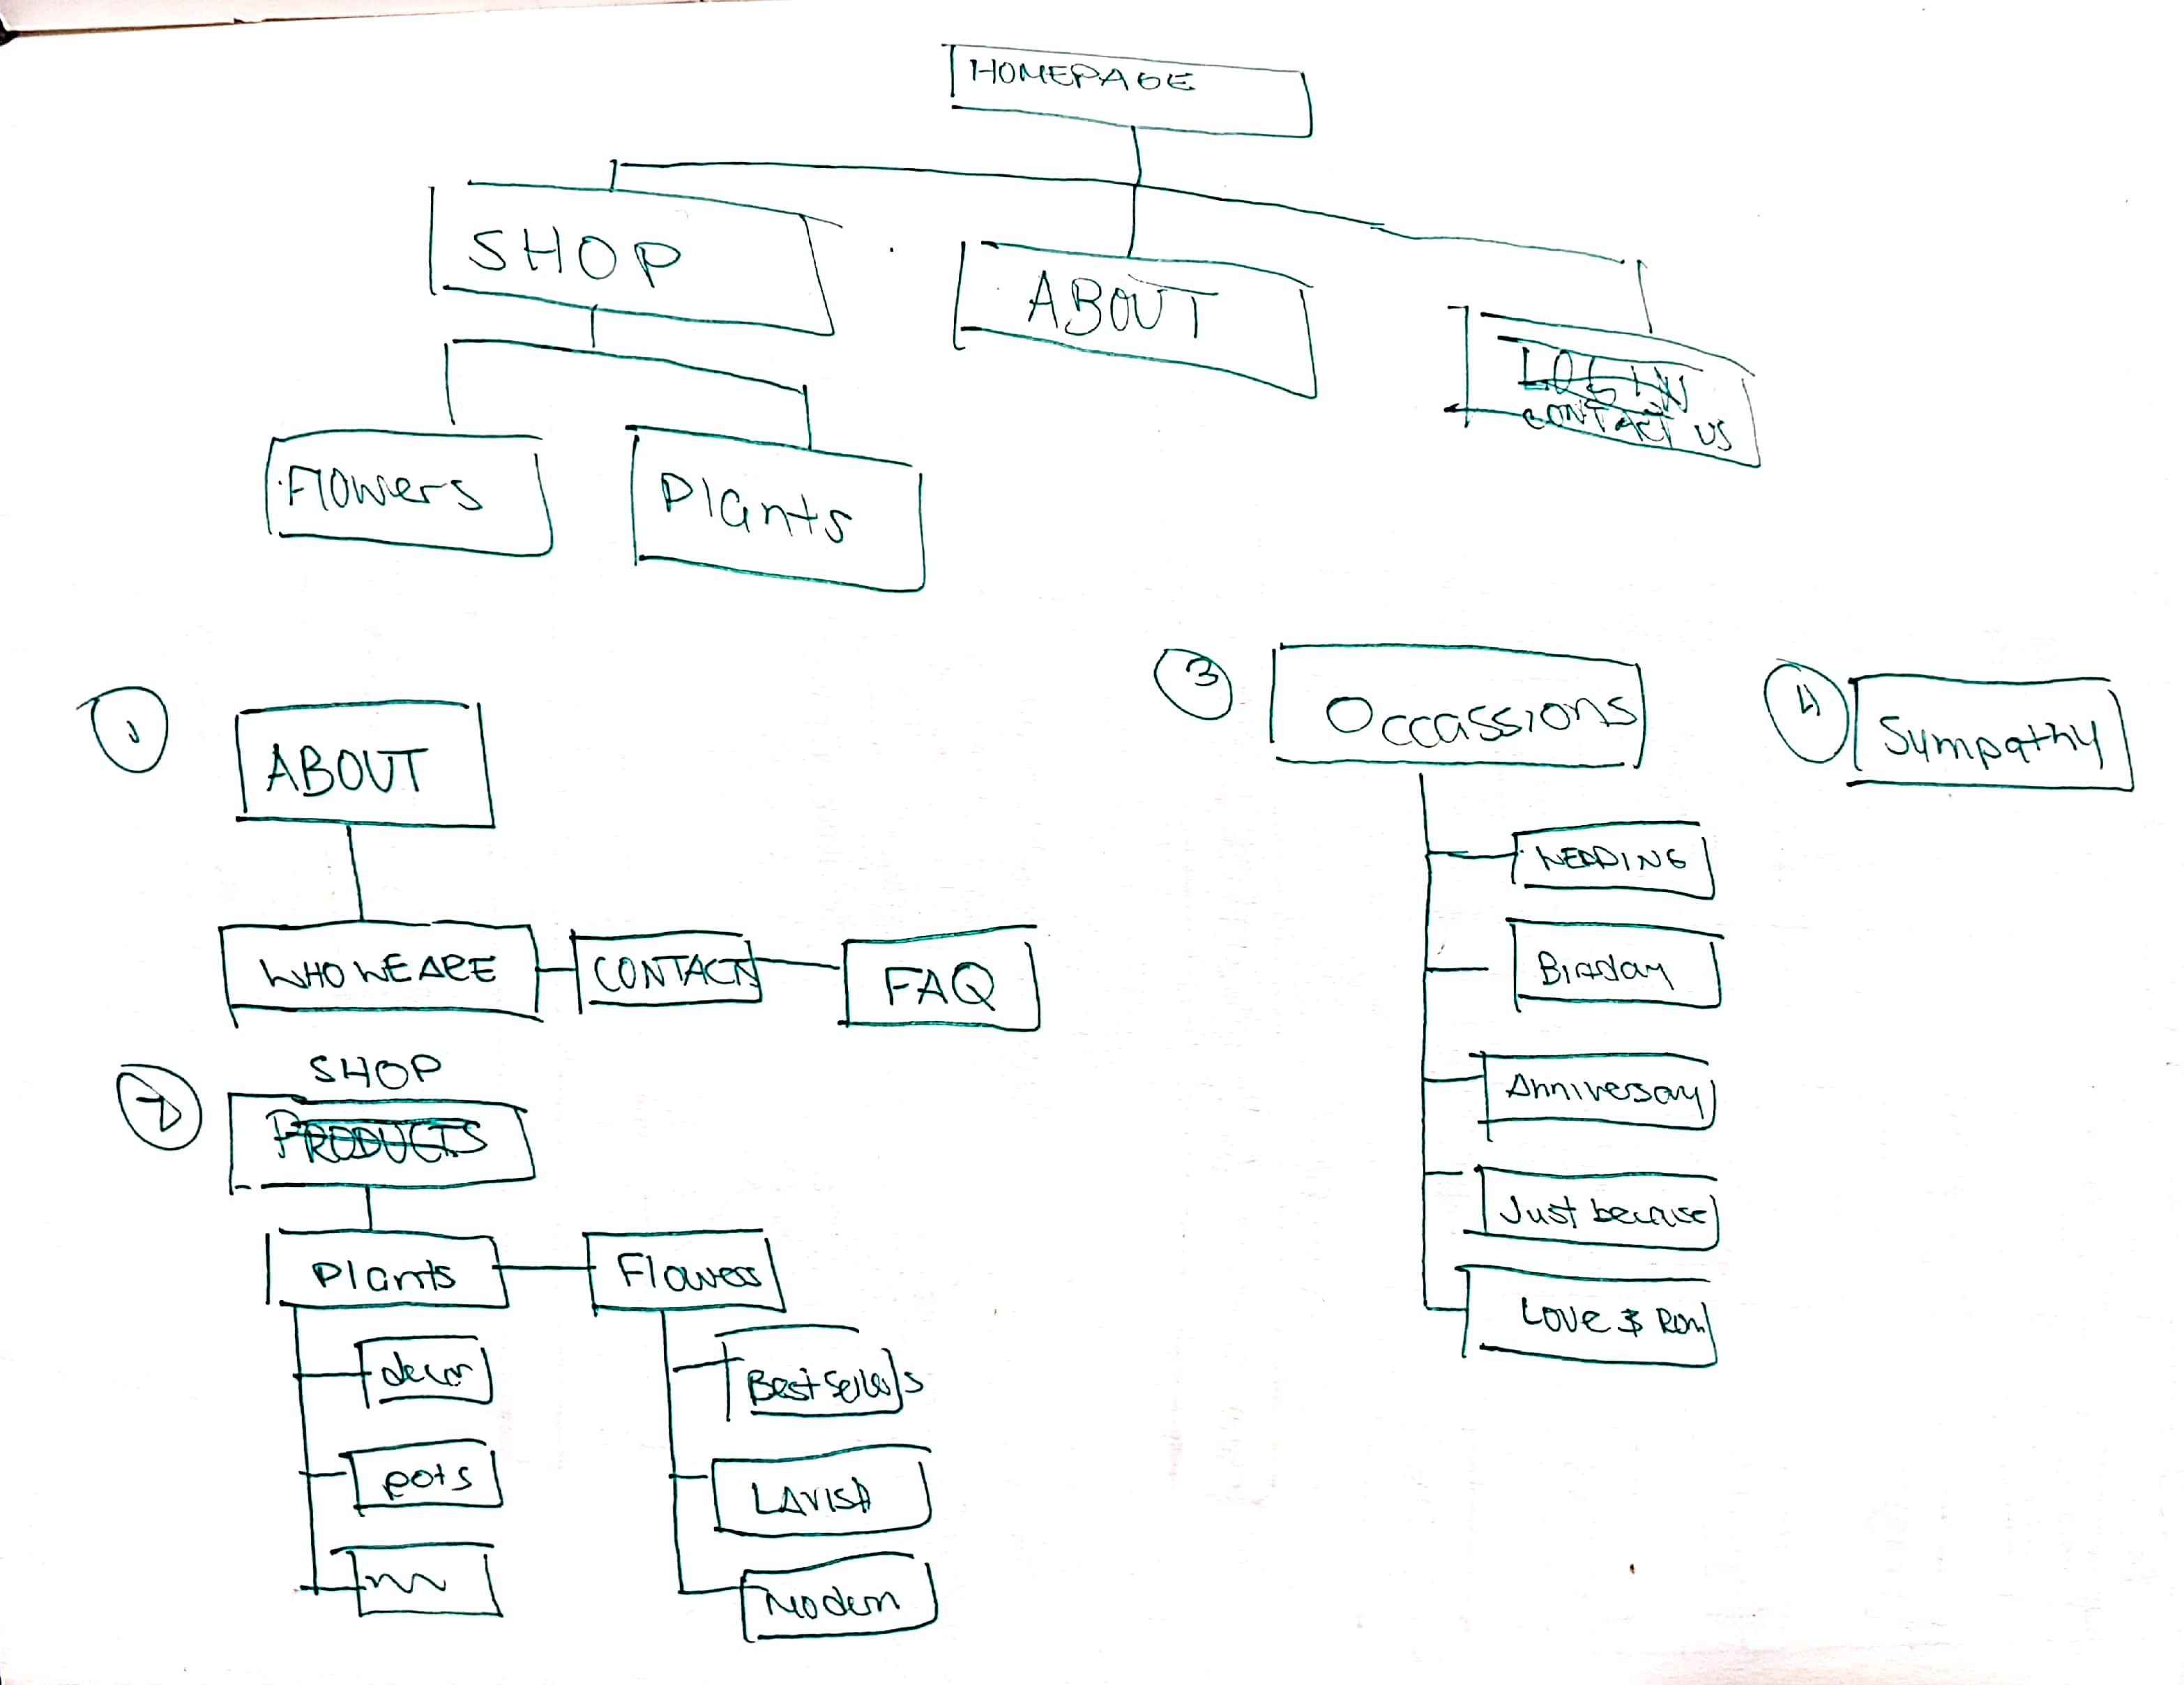 HOMEPAGE
SHOP
ABOUT
LOGIN
CONTACT US
Flowers
Plants
1
ABOUT
WHO WE ARE
CONTACT
FAQ
2
SHOP
PRODUCTS
Plants
Flowers
decor
pots
Best Sellers
LAVISH
Modern
3
Occassions
WEDDING
Birday
Anniversay
Just because
Love & Rom
4
Sympathy